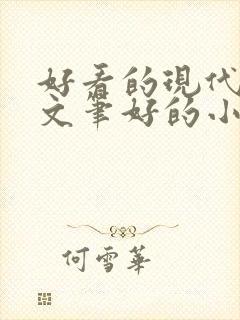 好看的現代
文筆好的小
何雪華